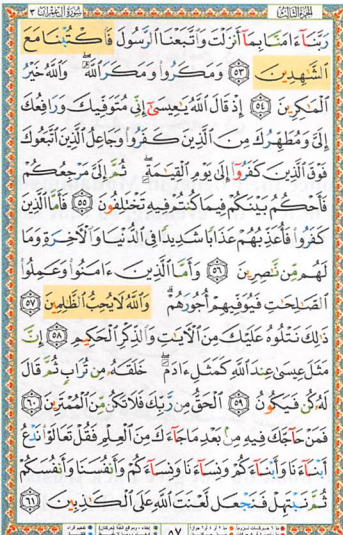 الجزء الثالث سورة آل عمران ٣
رَبَّنَآ ءَامَنَّا بِمَآ أَنزَلْتَ وَٱتَّبَعْنَا ٱلرَّسُولَ فَٱكْتُبْنَا مَعَ
ٱلشَّٰهِدِينَ ٥٣ وَمَكَرُوا۟ وَمَكَرَ ٱللَّهُ ۖ وَٱللَّهُ خَيْرُ
ٱلْمَٰكِرِينَ ٥٤ إِذْ قَالَ ٱللَّهُ يَٰعِيسَىٰٓ إِنِّى مُتَوَفِّيكَ وَرَافِعُكَ
إِلَىَّ وَمُطَهِّرُكَ مِنَ ٱلَّذِينَ كَفَرُوا۟ وَجَاعِلُ ٱلَّذِينَ ٱتَّبَعُوكَ
فَوْقَ ٱلَّذِينَ كَفَرُوٓا۟ إِلَىٰ يَوْمِ ٱلْقِيَٰمَةِ ۖ ثُمَّ إِلَىَّ مَرْجِعُكُمْ
فَأَحْكُمُ بَيْنَكُمْ فِيمَا كُنتُمْ فِيهِ تَخْتَلِفُونَ ٥٥ فَأَمَّا ٱلَّذِينَ
كَفَرُوا۟ فَأُعَذِّبُهُمْ عَذَابًا شَدِيدًا فِى ٱلدُّنْيَا وَٱلْءَاخِرَةِ وَمَا
لَهُم مِّن نَّٰصِرِينَ ٥٦ وَأَمَّا ٱلَّذِينَ ءَامَنُوا۟ وَعَمِلُوا۟
ٱلصَّٰلِحَٰتِ فَيُوَفِّيهِمْ أُجُورَهُمْ ۗ وَٱللَّهُ لَا يُحِبُّ ٱلظَّٰلِمِينَ ٥٧
ذَٰلِكَ نَتْلُوهُ عَلَيْكَ مِنَ ٱلْءَايَٰتِ وَٱلذِّكْرِ ٱلْحَكِيمِ ٥٨ إِنَّ
مَثَلَ عِيسَىٰ عِندَ ٱللَّهِ كَمَثَلِ ءَادَمَ ۖ خَلَقَهُۥ مِن تُرَابٍ ثُمَّ قَالَ
لَهُۥ كُن فَيَكُونُ ٥٩ ٱلْحَقُّ مِن رَّبِّكَ فَلَا تَكُن مِّنَ ٱلْمُمْتَرِينَ ٦٠
فَمَنْ حَآجَّكَ فِيهِ مِنۢ بَعْدِ مَا جَآءَكَ مِنَ ٱلْعِلْمِ فَقُلْ تَعَالَوْا۟ نَدْعُ
أَبْنَآءَنَا وَأَبْنَآءَكُمْ وَنِسَآءَنَا وَنِسَآءَكُمْ وَأَنفُسَنَا وَأَنفُسَكُمْ
ثُمَّ نَبْتَهِلْ فَنَجْعَل لَّعْنَتَ ٱللَّهِ عَلَى ٱلْكَٰذِبِينَ ٦١
٥٧